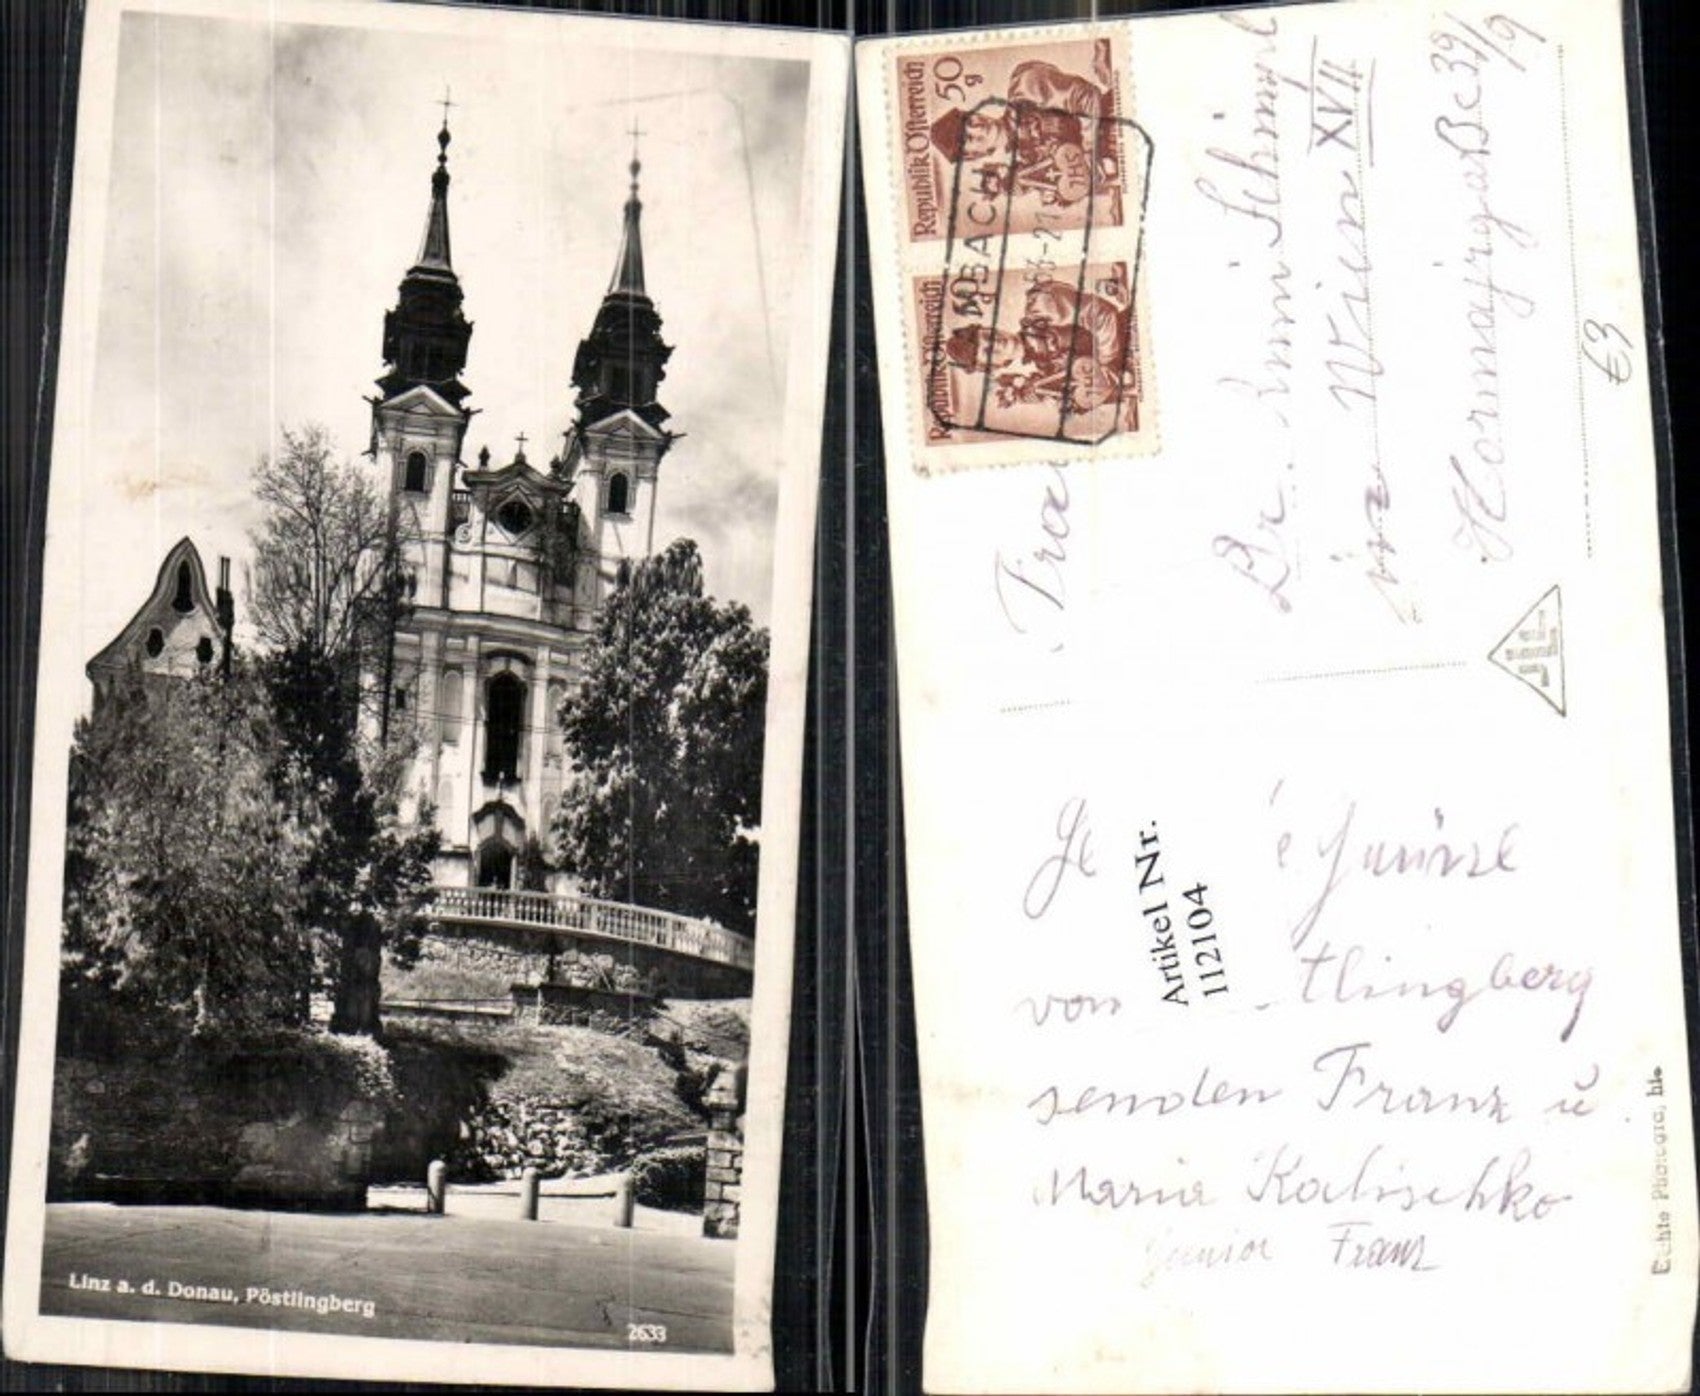 Linz a. d. Donau, Pöstlingberg
2633
Republik Österreich
50 g
Republik Österreich
LAMBACH
Dr.
in Wien XVII
Hormayrgasse 39/9
€3
Artikel Nr.
112104
von tlingberg
senden Franz u
Maria Kalischko
Junior Franz
Echte Photogra, hie